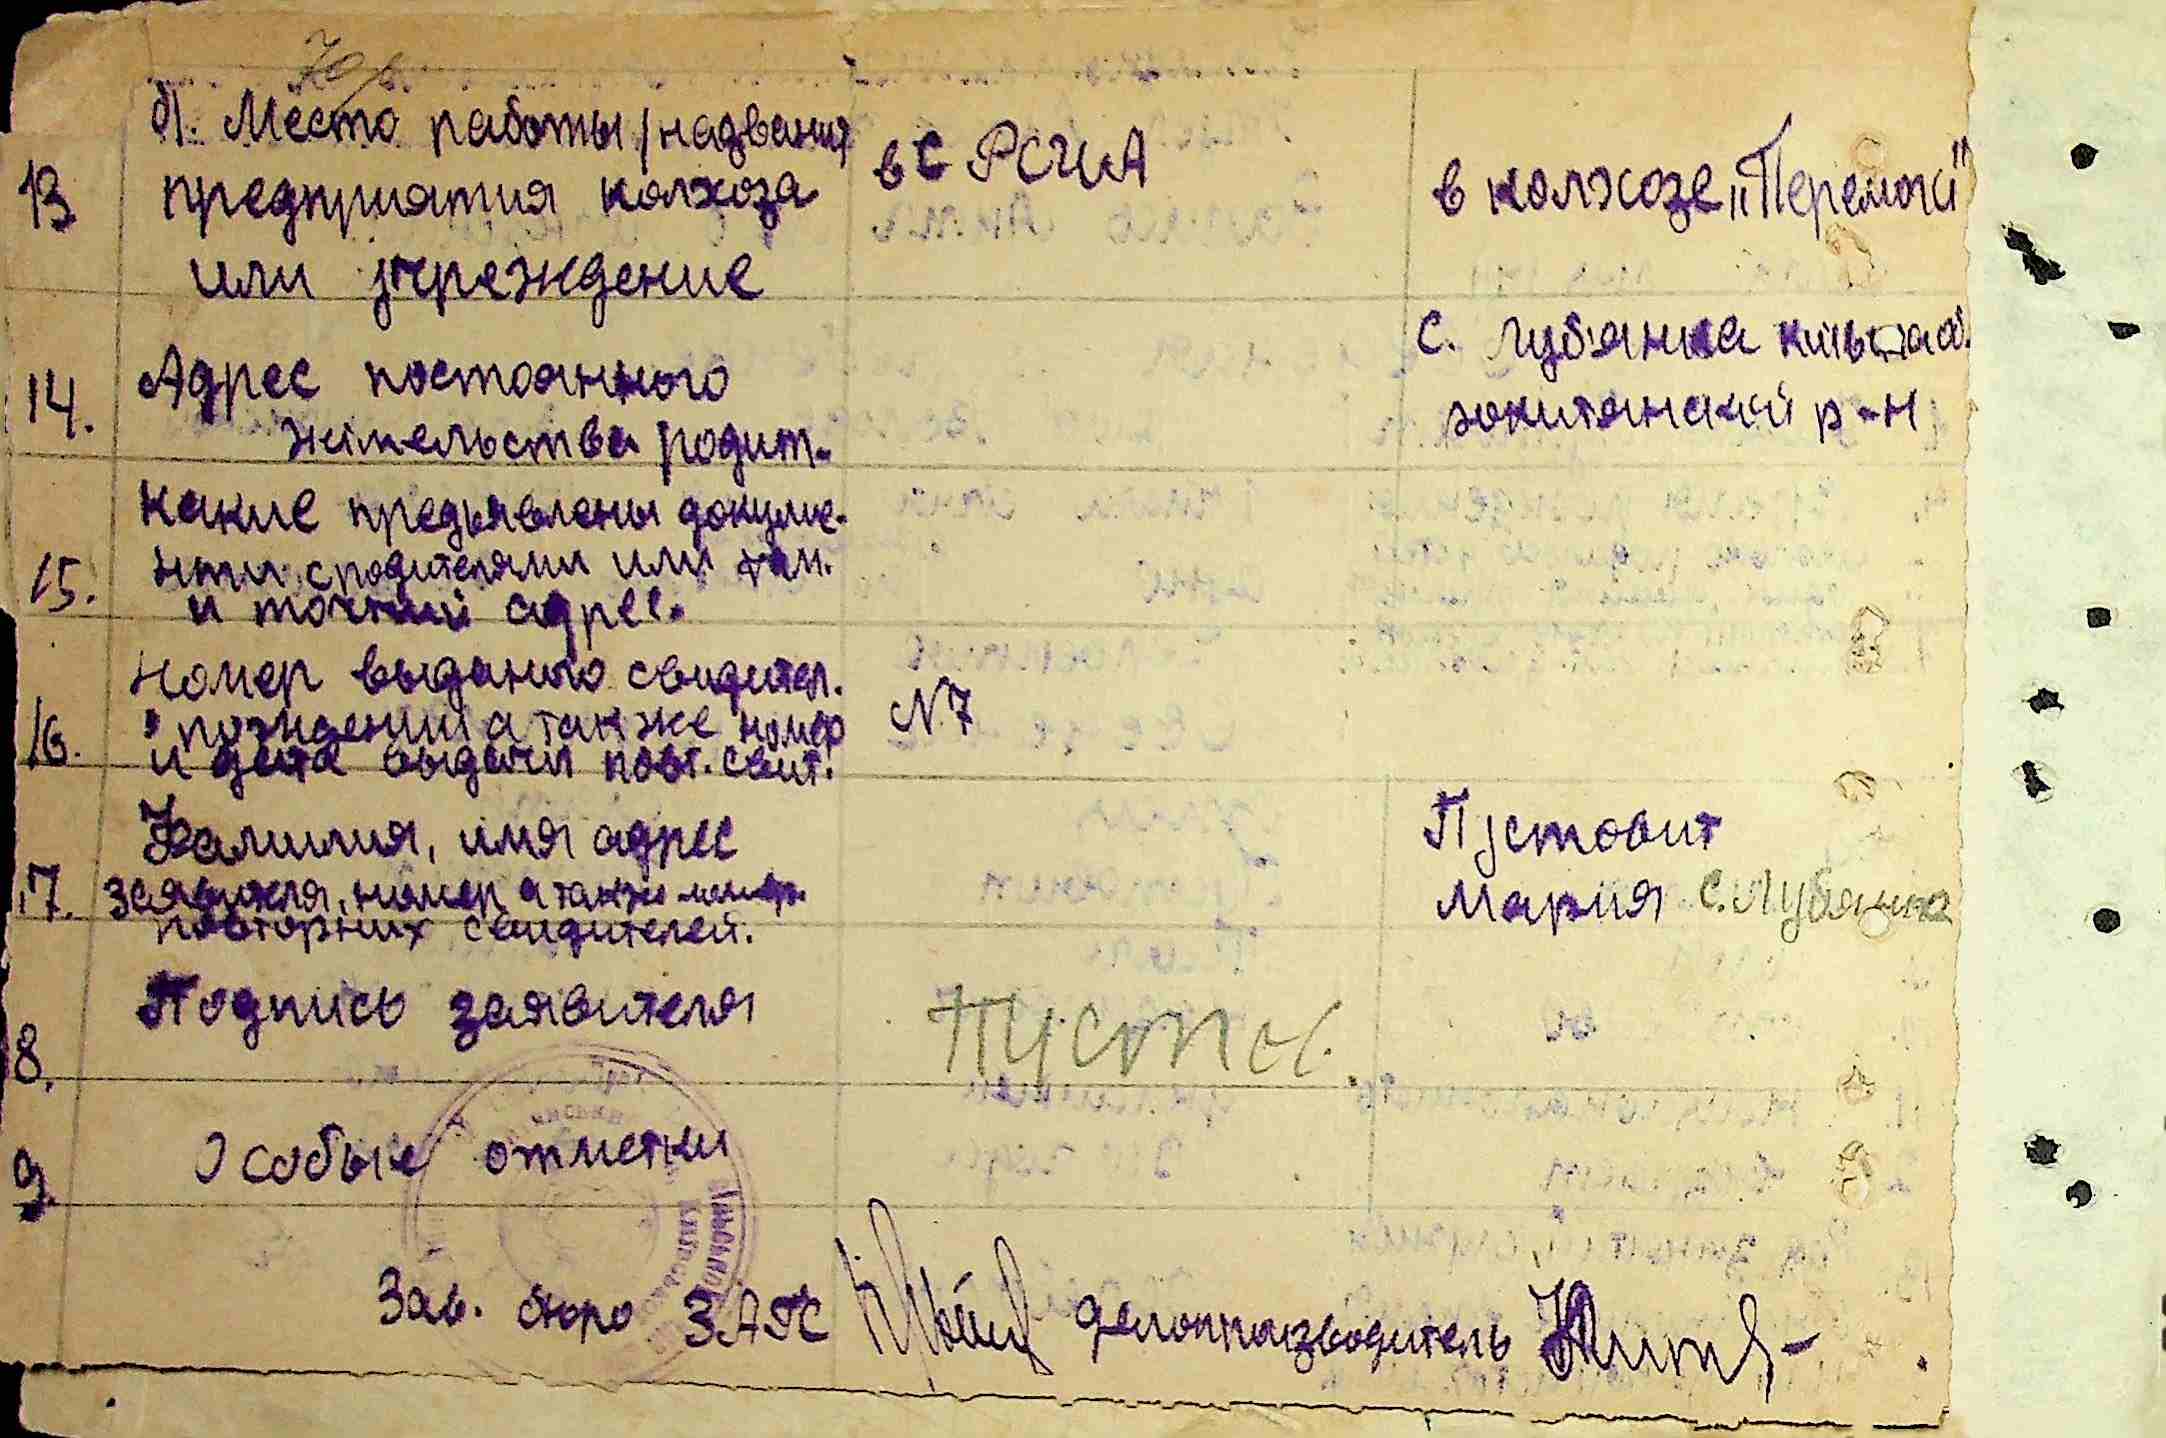 13 б). Место работы /названия
предприятия колхоза
или учреждение
в С РСЧА
в колхозе „Перемоги"
14. Адрес постоянного
жительства родит.
С. Лубянка
р-н
15. какие предьявлены докуме-
нти родителями или
и точний адрес.
16. Номер выданого свидител.
рождении а также номер
и дата выдачи повт. свит.
N 7
17. Фамилия, имя адрес
заявителя, номер а также
повторних свидителей.
Пустовит
Мария С. Лубянка
8. Подпись заявителя
Пустов.
9. Особые отметки
Зав. бюро ЗАГС делопроизводитель